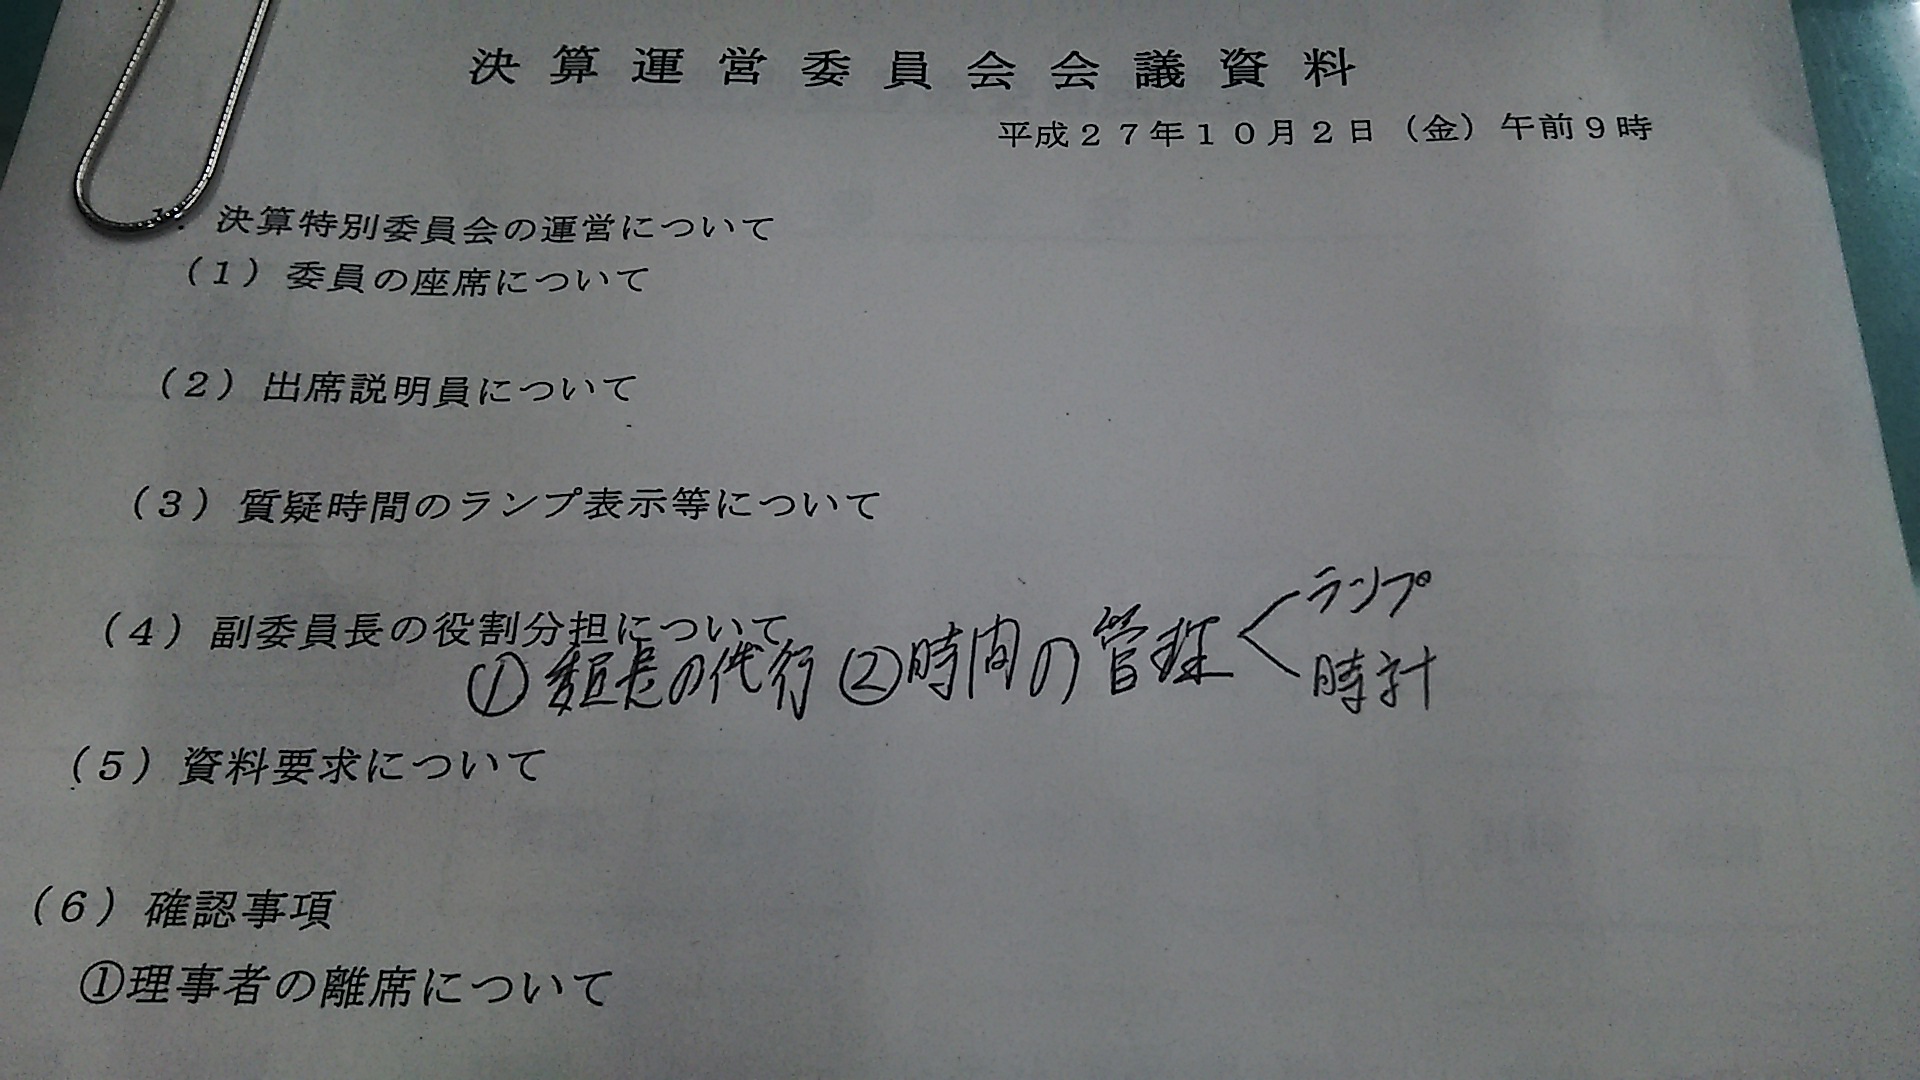 決算運営委員会会議資料
平成27年10月2日（金）午前9時
1．決算特別委員会の運営について
（1）委員の座席について
（2）出席説明員について
（3）質疑時間のランプ表示等について
（4）副委員長の役割分担について
①委員長の代行 ②時間の管理＜ランプ
時計
（5）資料要求について
（6）確認事項
①理事者の離席について